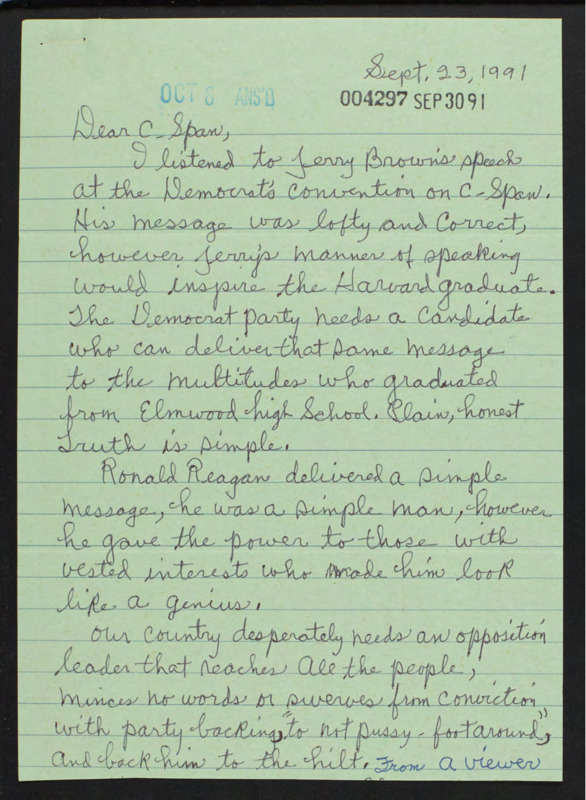 Sept. 23, 1991
OCT 8 ANS'D
004297 SEP 30 91
Dear C-Span,
I listened to Jerry Brown's speech
at the Democrat's convention on C-Span.
His message was lofty and correct,
however Jerry's manner of speaking
would inspire the Harvard graduate.
The Democrat party needs a candidate
who can deliver that same message
to the multitudes who graduated
from Elmwood high School. Plain, honest
Truth is simple.
Ronald Reagan delivered a simple
message, he was a simple man, however
he gave the power to those with
vested interests who made him look
like a genius.
Our country desperately needs an opposition
leader that reaches All the people,
minces no words or swerves from conviction,
with party backing, "to not pussy-foot around",
and back him to the hilt. From a viewer